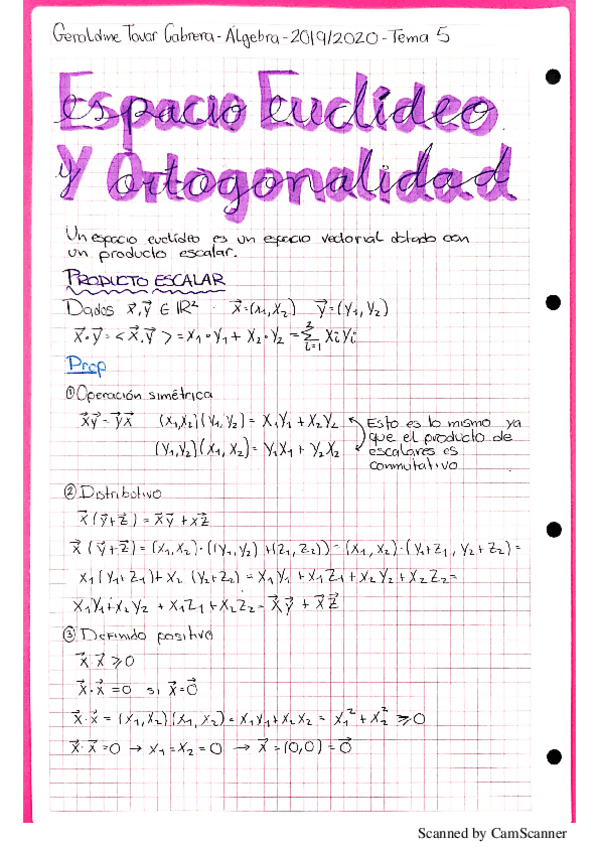 Geraldine Tovar Cabrera - Álgebra - 2019/2020 - Tema 5
Espacio Euclídeo
Y Ortogonalidad
Un espacio euclídeo es un espacio vectorial dotado con
un producto escalar.
PRODUCTO ESCALAR
Dados x⃗, y⃗ ∈ ℝ² · x⃗=(x₁,x₂) y⃗=(y₁,y₂)
x⃗·y⃗ = <x⃗,y⃗> = x₁·y₁ + x₂·y₂ = Σ²ᵢ₌₁ xᵢyᵢ
Prop
① Operación simétrica
x⃗y⃗ = y⃗x⃗ (x₁,x₂)(y₁,y₂) = x₁y₁ + x₂y₂ Esto es lo mismo ya
que el producto de
(y₁,y₂)(x₁,x₂) = y₁x₁ + y₂x₂ escalares es
conmutativo
② Distributivo
x⃗(y⃗+z⃗) = x⃗y⃗ + xz⃗
x⃗(y⃗+z⃗) = (x₁,x₂)·((y₁,y₂)+(z₁,z₂)) = (x₁,x₂)·(y₁+z₁,y₂+z₂) =
x₁(y₁+z₁)+x₂(y₂+z₂) = x₁y₁ + x₁z₁ + x₂y₂ + x₂z₂ =
x₁y₁+x₂y₂ + x₁z₁+x₂z₂ = x⃗y⃗ + x⃗z⃗
③ Definido positivo
x⃗·x⃗ ⩾ 0
x⃗·x⃗ = 0 si x⃗=0⃗
x⃗·x⃗ = (x₁,x₂)(x₁,x₂) = x₁x₁+x₂x₂ = x₁²+x₂² ⩾ 0
x⃗·x⃗=0 → x₁=x₂=0 → x⃗=(0,0)=0⃗
Scanned by CamScanner